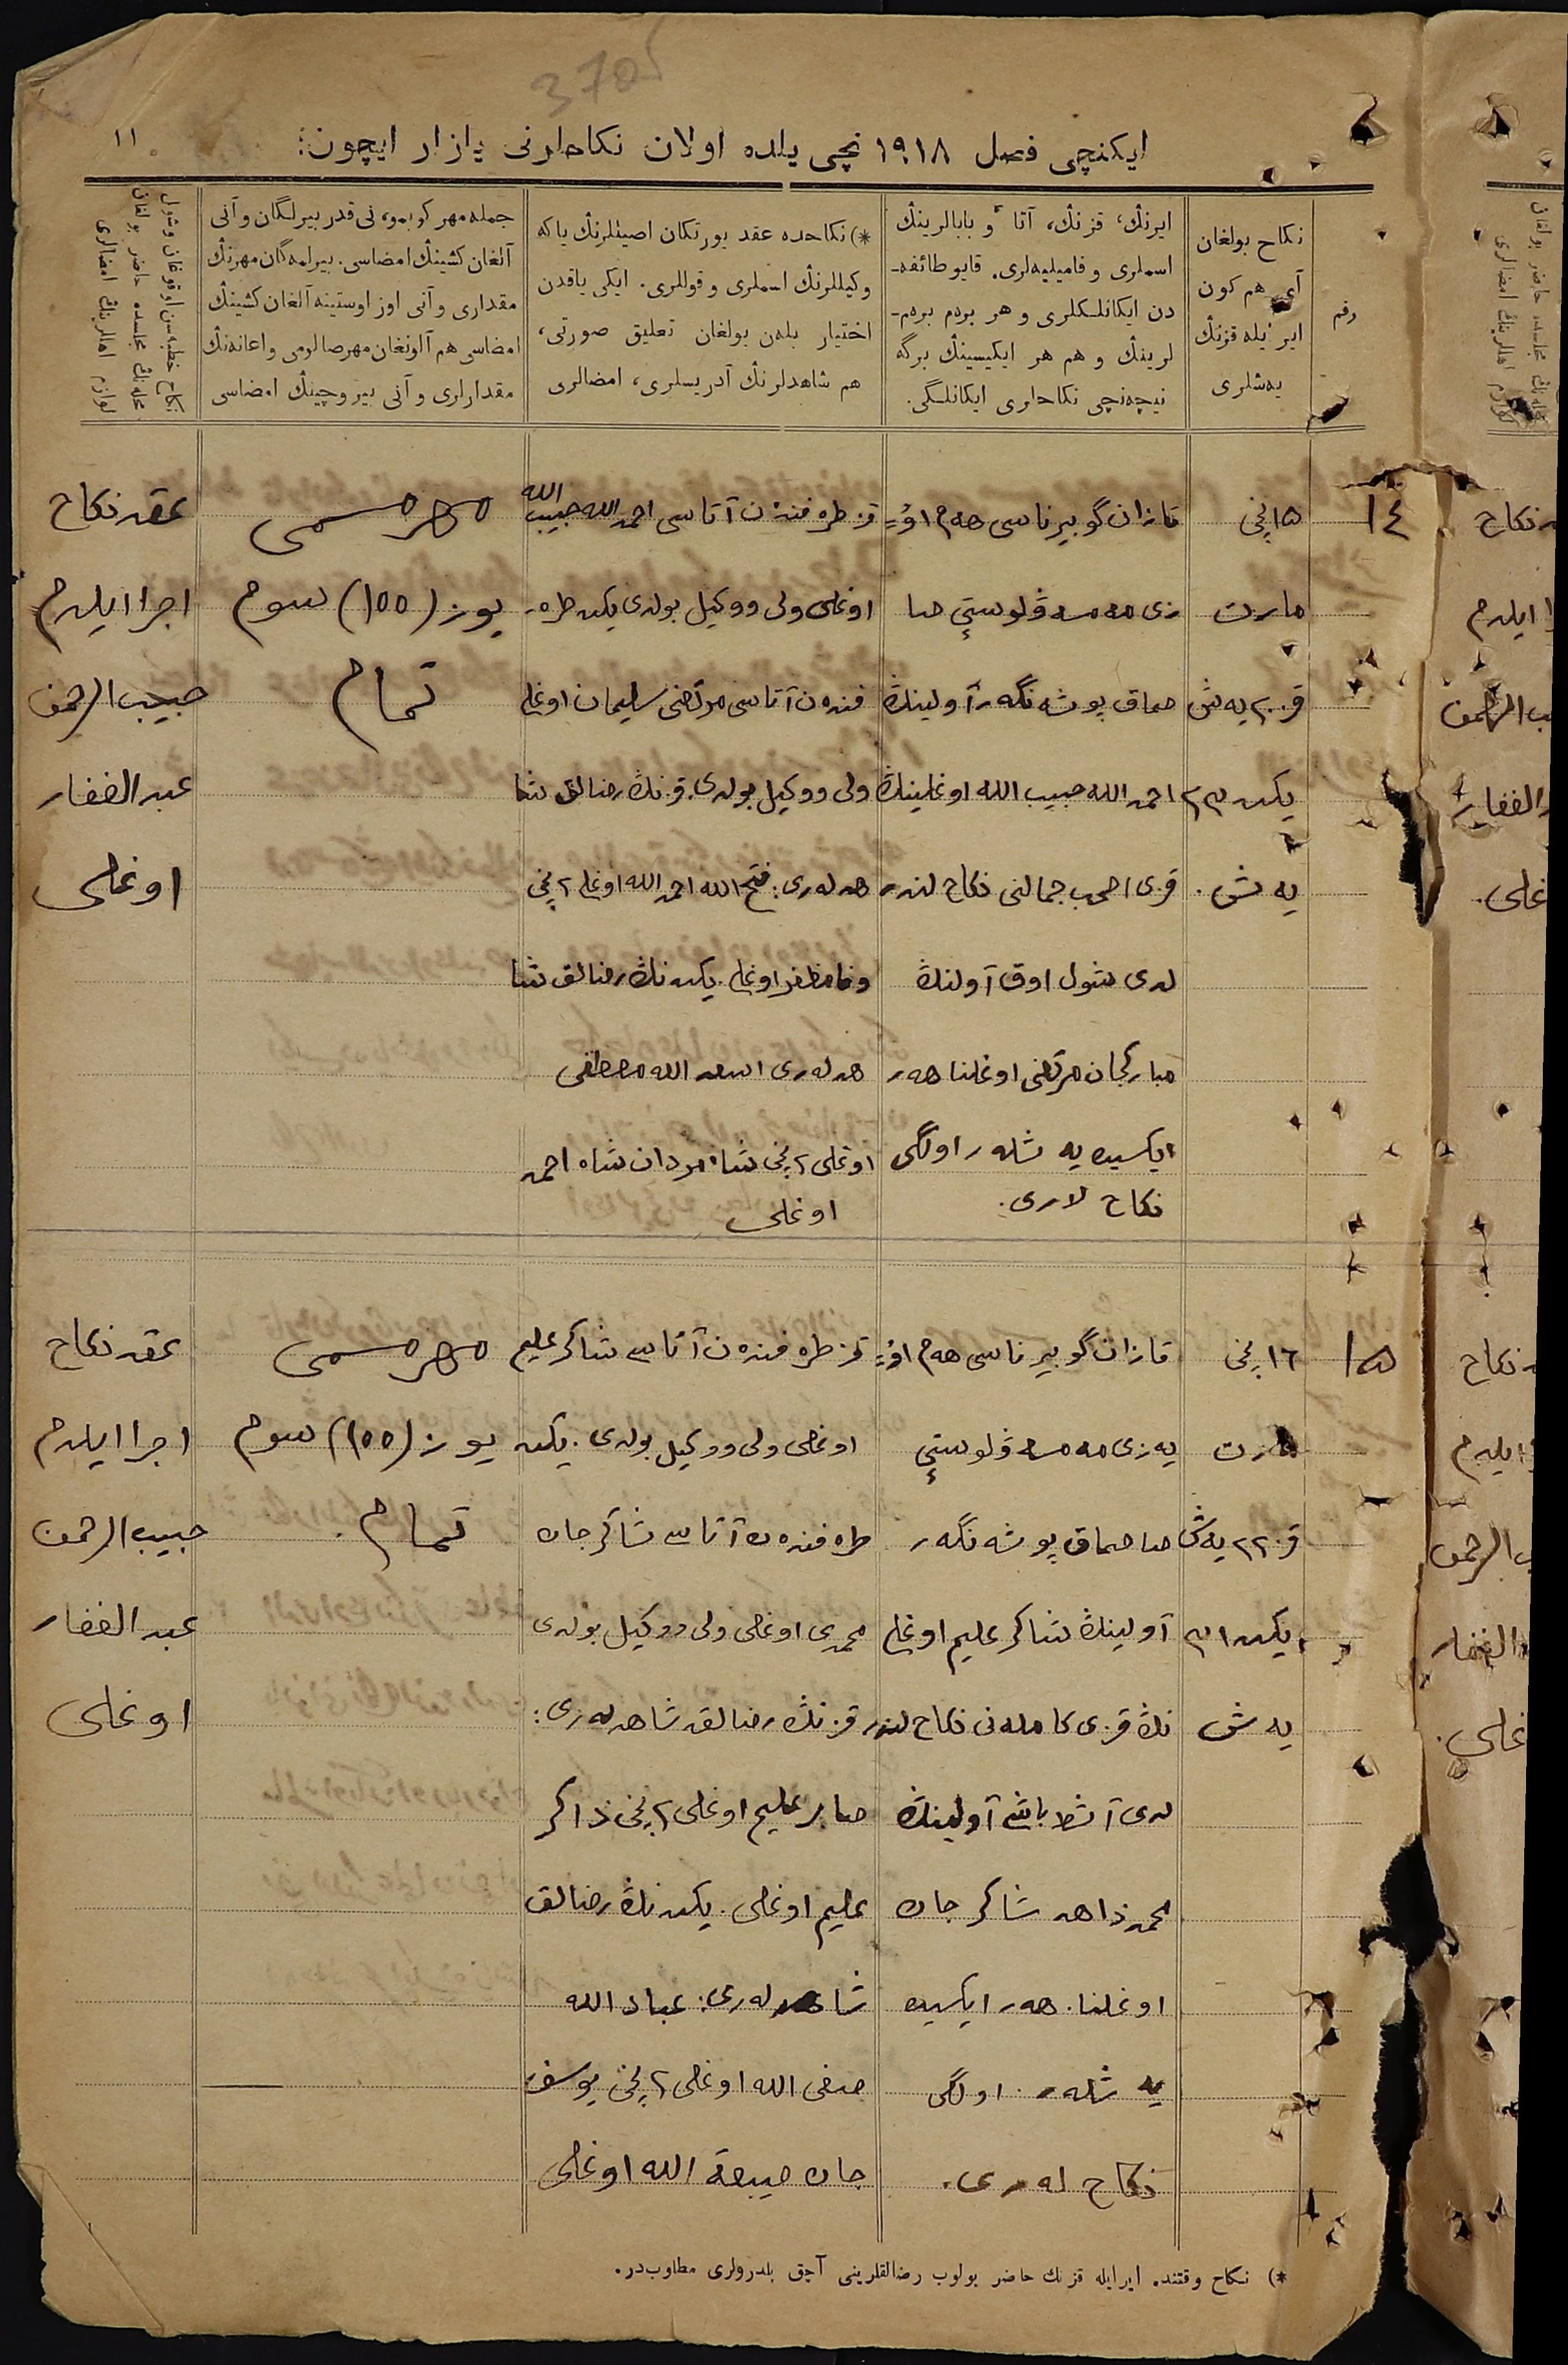 3705
١١
ایکنچی فصل ١٩١٨ نچی یلده اولان نکاحلرنی یازار ایچون:
رقم
نکاح بولغان
آی هم کون
ایر ئیله قزنڭ
یەشلری
ایرنڭ، قزنڭ، آتا و بابالرینڭ
اسملری و فامیلیەلری. قایو طائفه‌ـ
دن ایکانلکلری و هر بردم بردم‌ـ
لرینڭ و هم هر ایکیسینڭ برگه
نیچەنچی نکاحلری ایکانلگی.
*) نکاحده عقد یورتکان اصیللرنڭ یاکه
وکیللرنڭ اسملری و قوللری. ایکی یاقدن
اختیار بلەن بولغان تعلیق صورتی،
هم شاهدلرنڭ آدریسلری، امضالری
جمله مهر کوبمو، نی قدر بیرلگان و آنی
آلغان کشینڭ امضاسی. بیرلمەگان مهرنڭ
مقداری و آنی اوز اوستینه آلغان کشینڭ
امضاسی هم آلونغان مهرصالومی و اعانه‌نڭ
مقدارلری و آنی بیروچینڭ امضاسی
نکاح خطبه‌سن اوقوغان و شول
محله‌نڭ مجلسده حاضر بولغان
لوازم اهللرینڭ امضالری
١٤
١۵ نچی
مارت
قز ٢٠ یەش
یکت ٢٣
یەش.
قازان گوبیرناسی هەم اۉیـ
زی مەمسە ڤلوستی صا
صماق پوشەنگەر آولینڭ
احمد الله حبیب الله اوغلینڭ
قزی احب جمالنی نکاح لندر
لدی شول اوق آولنڭ
مبارکجان مرتضی اوغلنا هەر
ایکسیده یەشلەر اولگی
نکاح لاری.
قز طرەفندن آتاسی احمد الله حبیب الله
اوغلی ولی و وکیل بولدی یکت طرەـ
فندەن آتاسی مرتضی سلیمان اوغلی
ولی و وکیل بولدی. قزنڭ رضالق شا
هدلەری: فتح الله احمد الله اوغلی ٢ نچی
اوغلی. یکت نڭ رضالق شا
هدلەری اسعد الله مصطفی
اوغلی ٢ نچی شاه مردان شاه احمد
اوغلی
مهر مسمی
یوز (١٠٠) سوم
تمام
عقد نکاح
اجرا ایلدم
حبیب الرحمن
عبد الغفار
اوغلی
١۵
١٦ نچی
مارت
قز ٢٢ یەش
یکت ٣١
یەش
قازان گوبیرناسی هەم اۉیـ
یەزی مەمسە ڤلوستی
صاصماق پوشەنگەر
آولینڭ شاکر علیم اوغلی
نڭ قزی کاملەنی نکاح لندر
لدی آشط باشی آولینڭ
محمد زاهد شاکر جان
اوغلنا. هەر ایکسیده
یەشلەر. اولگی
نکاح لەری.
قز طرەفندەن آتاسی شاکر علیم
اوغلی ولی و وکیل بولدی. یکت
طرەفندەن آتاسی شاکر جان
محمدی اوغلی ولی و وکیل بولدی
قزنڭ رضالق شاهدلەری:
صابر علیم اوغلی ٢ نچی ذاکر
علیم اوغلی. یکت نڭ رضالق
شاهدلەری: عباد الله
صفی الله اوغلی ٢ نچی یوسف
جان صبغة الله اوغلی
مهر مسمی
یوز (١٠٠) سوم
تمام.
عقد نکاح
اجرا ایلدم
حبیب الرحمن
عبد الغفار
اوغلی
*) نکاح وقتنده ایر ایله قزنڭ حاضر بولوب رضالقلرینی آچق بلدرولری مطلوب‌در.